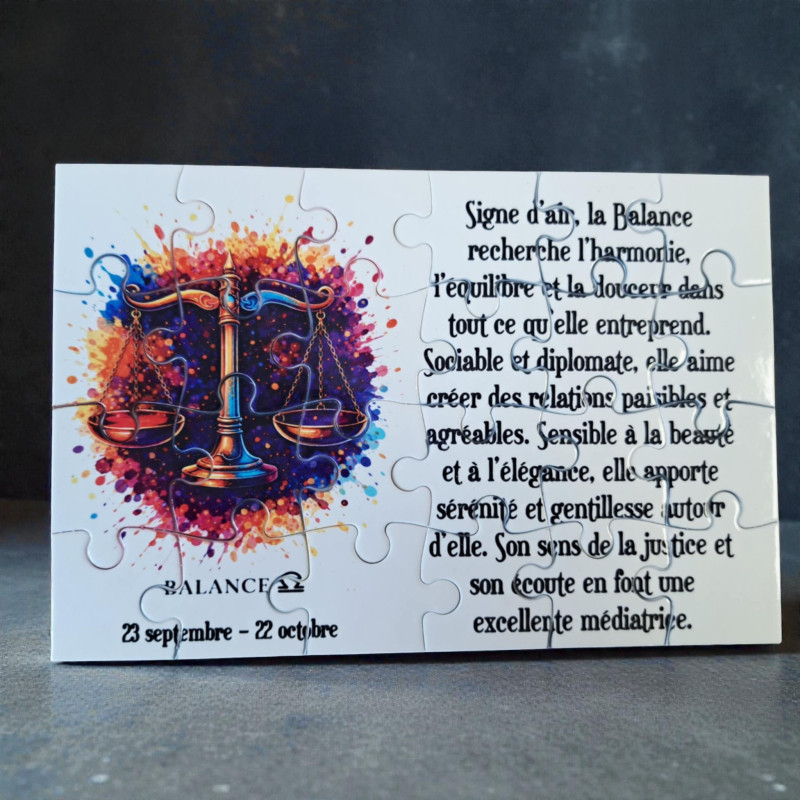 Signe d'air, la Balance
recherche l'harmonie,
l'équilibre et la douceur dans
tout ce qu'elle entreprend.
Sociable et diplomate, elle aime
créer des relations paisibles et
agréables. Sensible à la beauté
et à l'élégance, elle apporte
sérénité et gentillesse autour
d'elle. Son sens de la justice et
son écoute en font une
excellente médiatrice.
BALANCE ♎
23 septembre - 22 octobre